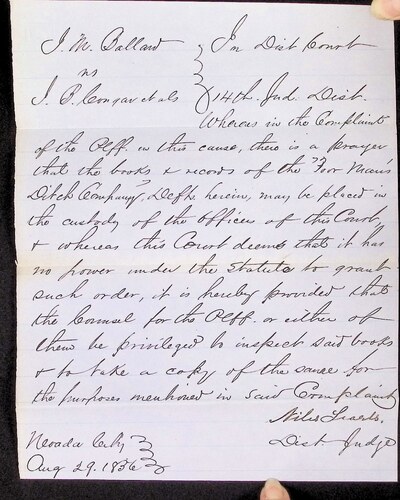 J. M. Ballard } In Dist Court
vs
J. P. et als } 14th. Jud. Dist.
Whereas in the Complaint
of the Plff. in this cause, there is a prayer
that the books & records of the "Poor Man's
Ditch Company", Defts herein, may be placed in
the custody of the Officer of this Court,
& whereas this Court deems that it has
no power under the Statute to grant
such order, it is hereby provided that
the Counsel for the Plff. or either of
them be privileged to inspect said books
& to take a copy of the same for
the purposes mentioned in said Complaint
Niles Searls,
Dist. Judge
Nevada City }
Aug 29. 1856 }